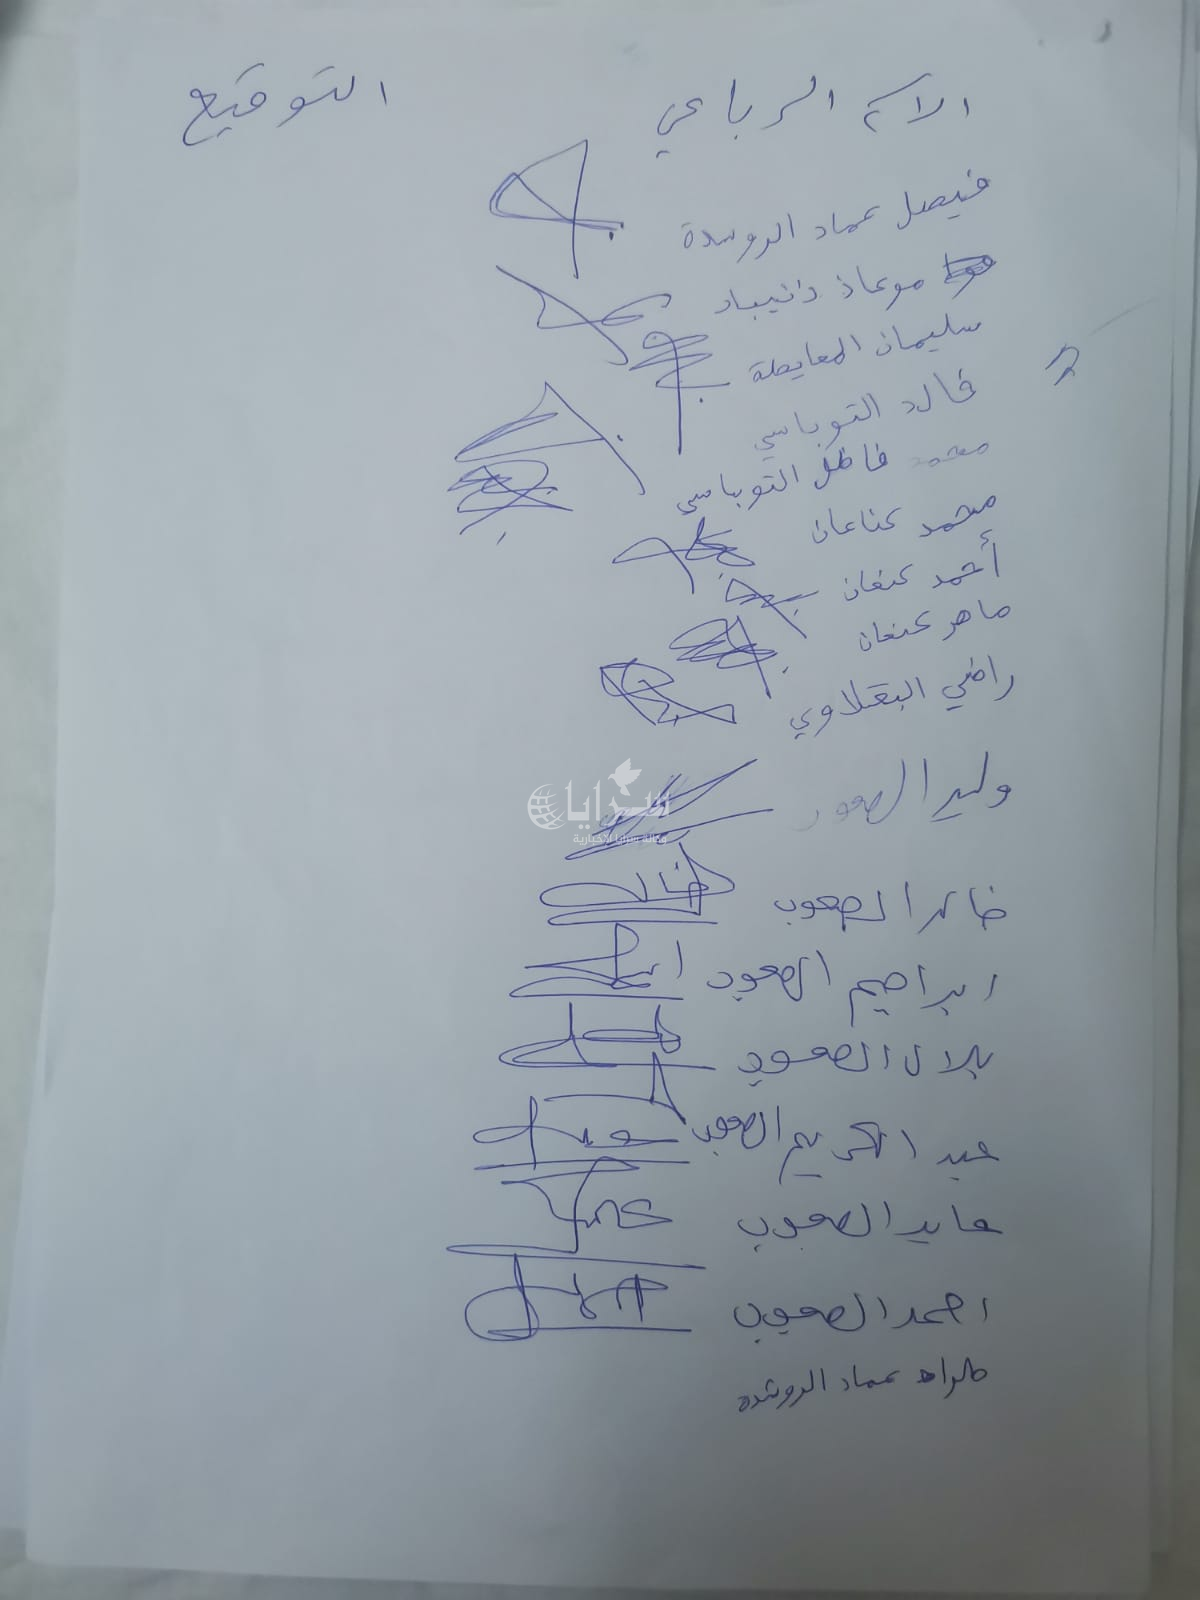 الاسم الرباعي التوقيع
فيصل عماد الروشدة
موعاذ ذنيبات
سليمان المعايطة
خالد التوباسي
محمد فاظل التوباسي
محمد كنعان
أحمد كنعان
ماهر كنعان
راضي البقلاوي
وليد الصعوب
سرايا
وكالة سرايا الإخبارية
الصعوب
ابراهيم الصعوب
بلال الصعوب
عبد الكريم الصعوب
عايد الصعوب
احمد الصعوب
عماد الروشده